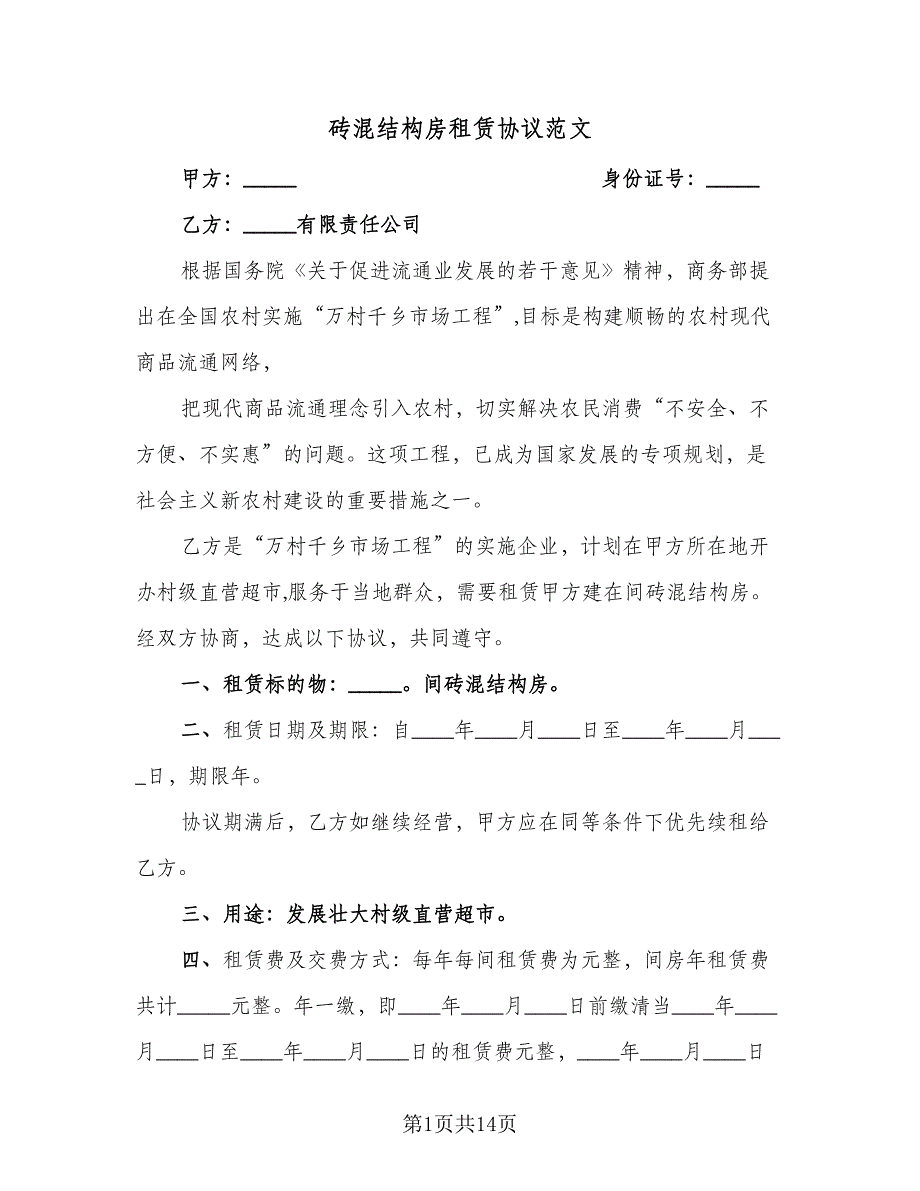 砖混结构房租赁协议范文
甲方：_____ 身份证号：_____
乙方：_____有限责任公司
根据国务院《关于促进流通业发展的若干意见》精神，商务部提
出在全国农村实施“万村千乡市场工程”,目标是构建顺畅的农村现代
商品流通网络，
把现代商品流通理念引入农村，切实解决农民消费“不安全、不
方便、不实惠”的问题。这项工程，已成为国家发展的专项规划，是
社会主义新农村建设的重要措施之一。
乙方是“万村千乡市场工程”的实施企业，计划在甲方所在地开
办村级直营超市,服务于当地群众，需要租赁甲方建在间砖混结构房。
经双方协商，达成以下协议，共同遵守。
一、租赁标的物：_____。间砖混结构房。
二、租赁日期及期限：自____年____月____日至____年____月___
_日，期限年。
协议期满后，乙方如继续经营，甲方应在同等条件下优先续租给
乙方。
三、用途：发展壮大村级直营超市。
四、租赁费及交费方式：每年每间租赁费为元整，间房年租赁费
共计_____元整。年一缴，即____年____月____日前缴清当____年____
月____日至____年____月____日的租赁费元整，____年____月____日
第1页共14页